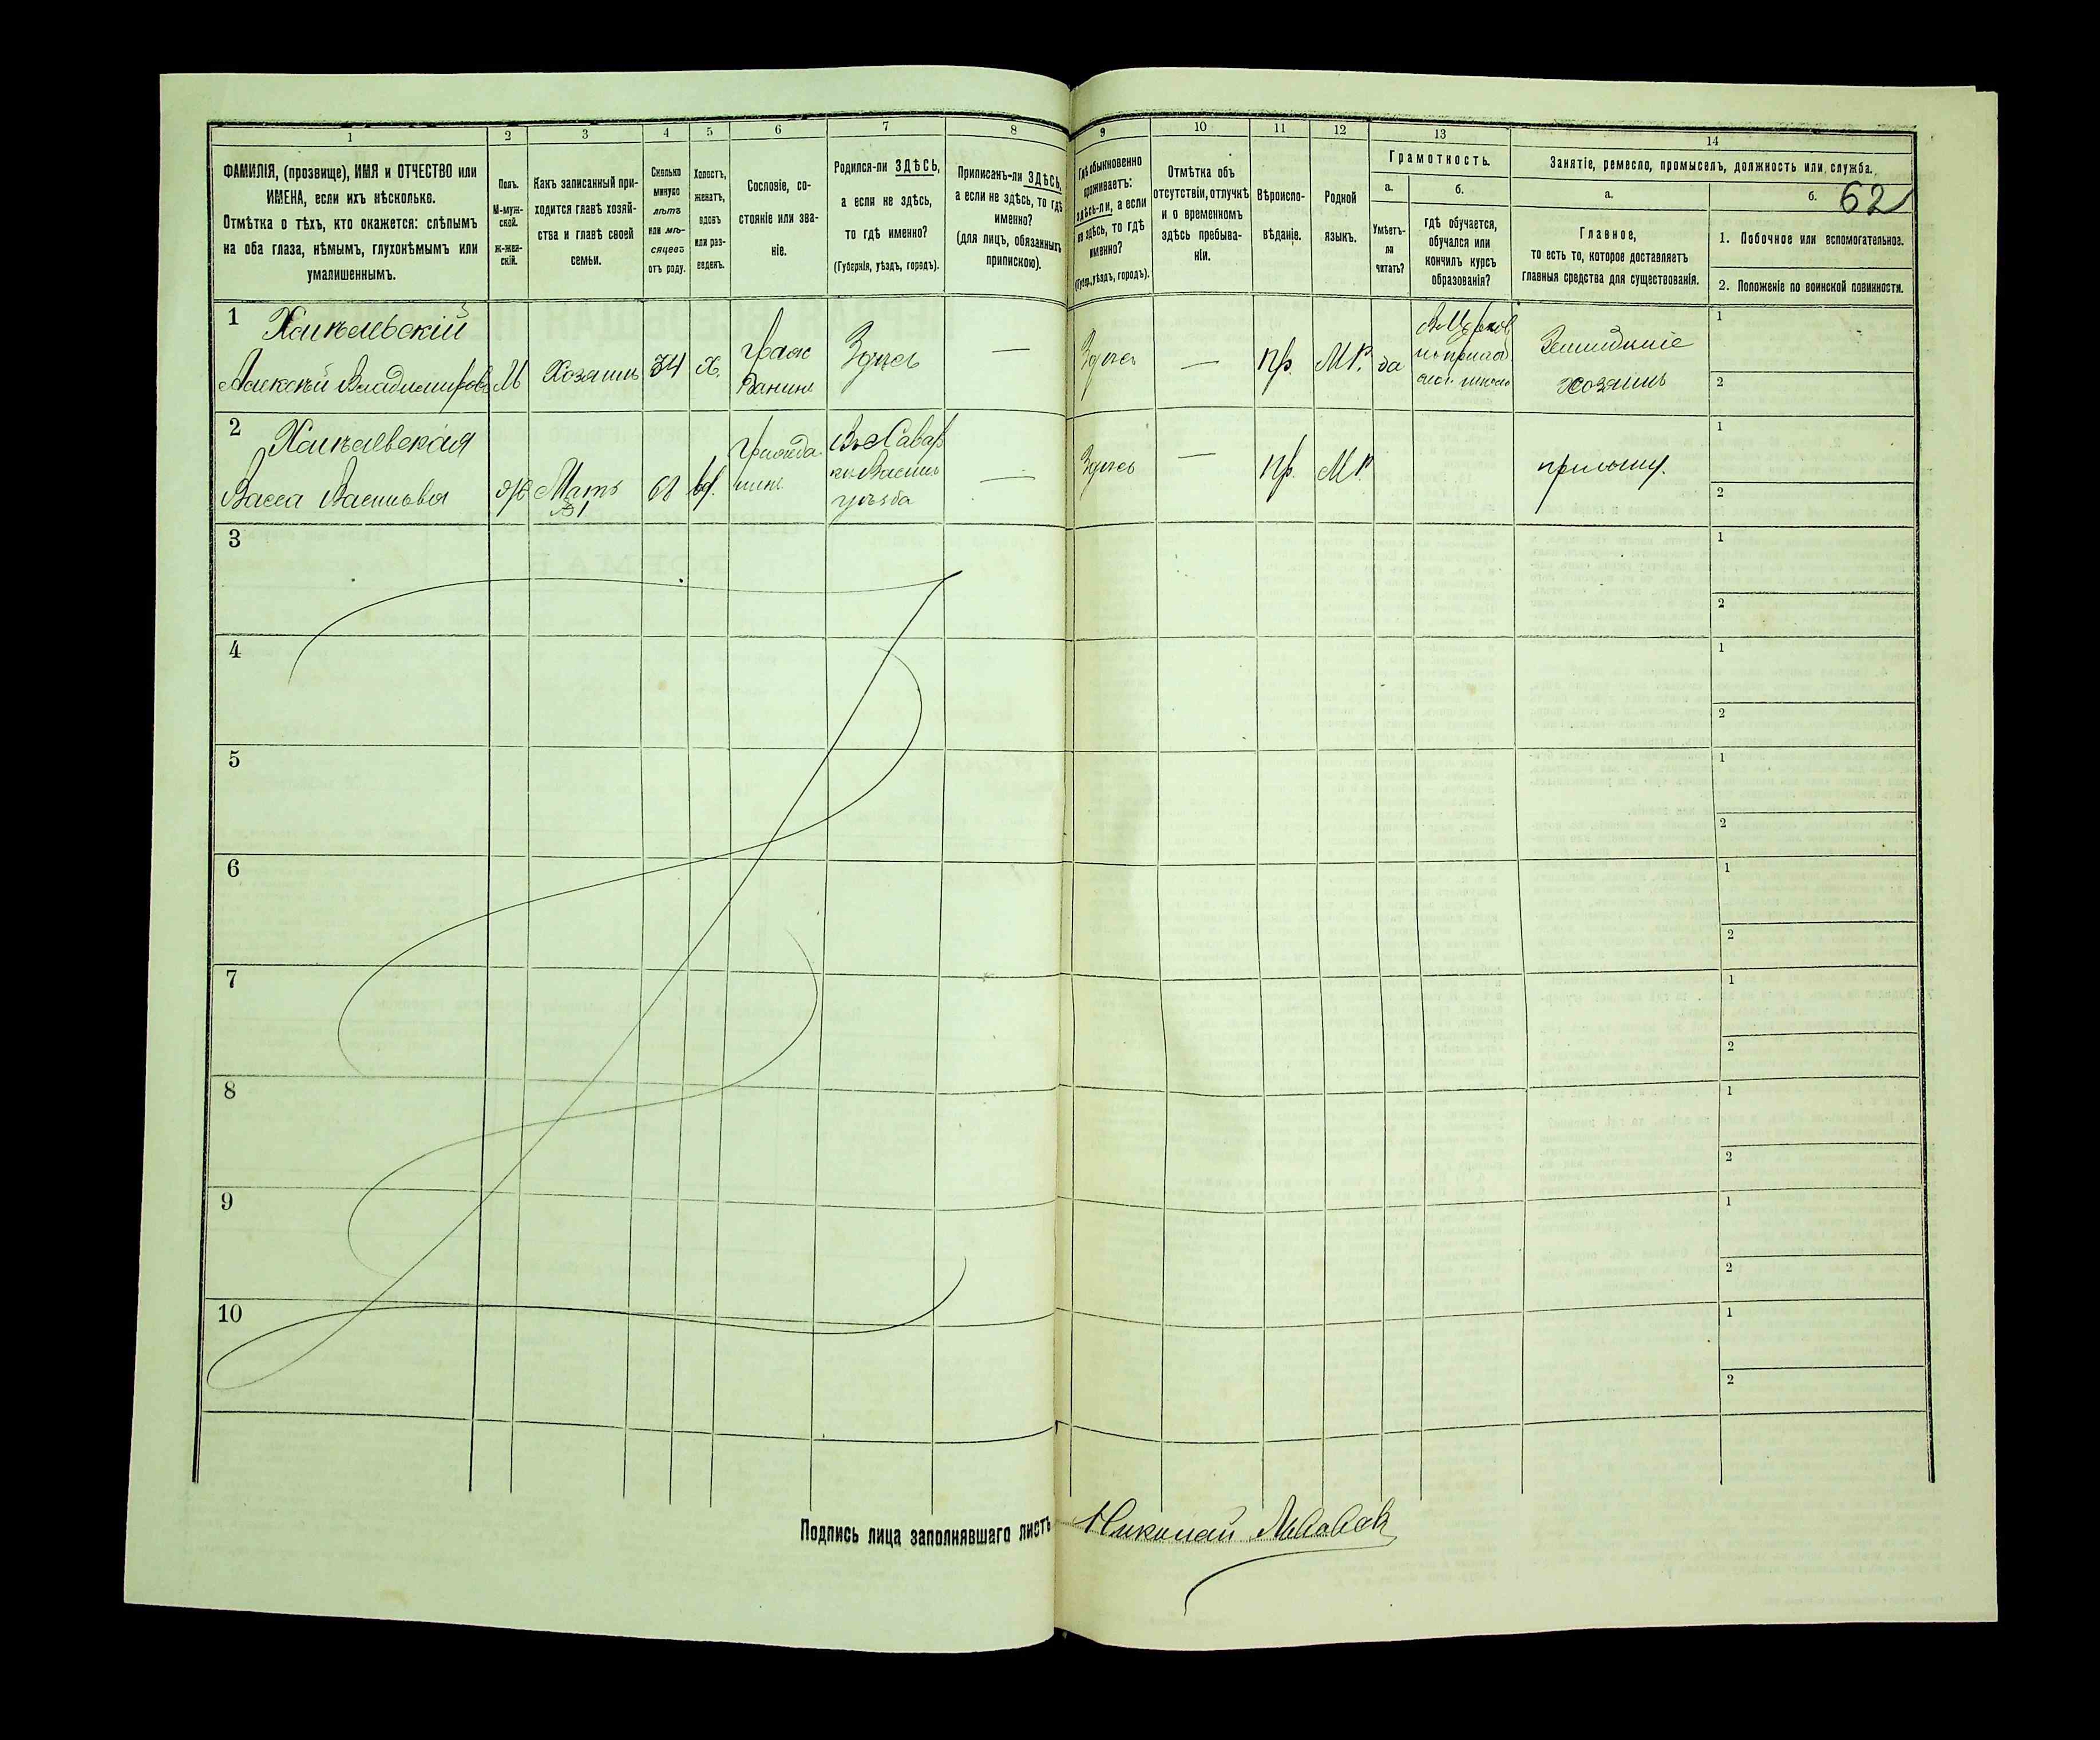 1
2
3
4
5
6
7
8
ФАМИЛІЯ, (прозвище), ИМЯ и ОТЧЕСТВО или
ИМЕНА, если ихъ нѣсколько.
Отмѣтка о тѣхъ, кто окажется: слѣпымъ
на оба глаза, нѣмымъ, глухонѣмымъ или
умалишеннымъ.
Полъ.
М-муж-
ской.
ж-жен-
скій.
Какъ записанный при-
ходится главѣ хозяй-
ства и главѣ своей
семьи.
Сколько
минуло
лѣтъ
или мѣ-
сяцевъ
отъ роду.
Холостъ,
женатъ,
вдовъ
или раз-
веденъ.
Сословіе, со-
стояніе или зва-
ніе.
Родился-ли ЗДѢСЬ,
а если не здѣсь,
то гдѣ именно?
(Губернія, уѣздъ, городъ).
Приписанъ-ли ЗДѢСЬ,
а если не здѣсь, то гдѣ
именно?
(для лицъ, обязанныхъ
припискою).
9
10
11
12
13
14
Гдѣ обыкновенно
проживаетъ:
здѣсь-ли, а если
не здѣсь, то гдѣ
именно?
(Губер., уѣздъ, городъ).
Отмѣтка объ
отсутствіи, отлучкѣ
и о временномъ
здѣсь пребыва-
ніи.
Вѣроиспо-
вѣданіе.
Родной
языкъ.
Грамотность.
а.
б.
Умѣетъ-
ли
читать?
гдѣ обучается,
обучался или
кончилъ курсъ
образованія?
Занятіе, ремесло, промыселъ, должность или служба.
62
а.
б.
Главное,
то есть то, которое доставляетъ
главныя средства для существованія.
1. Побочное или вспомогательное.
2. Положеніе по воинской повинности.
1
Алексѣй Владимиров
М
Хозяинъ
34
Х.
Граж
данинъ
Здѣсь
—
Здѣсь
—
Пр.
М.Р.
да
Земледѣліе
хозяинъ
1
2
2
Васса Васильева
Ж
Мать
1
68
вд.
Гражда
—
Здѣсь
—
Пр.
М.Р.
1
2
3
1
2
4
1
2
5
1
2
6
1
2
7
1
2
8
1
2
9
1
2
10
1
2
Подпись лица заполнявшаго листъ
Николай